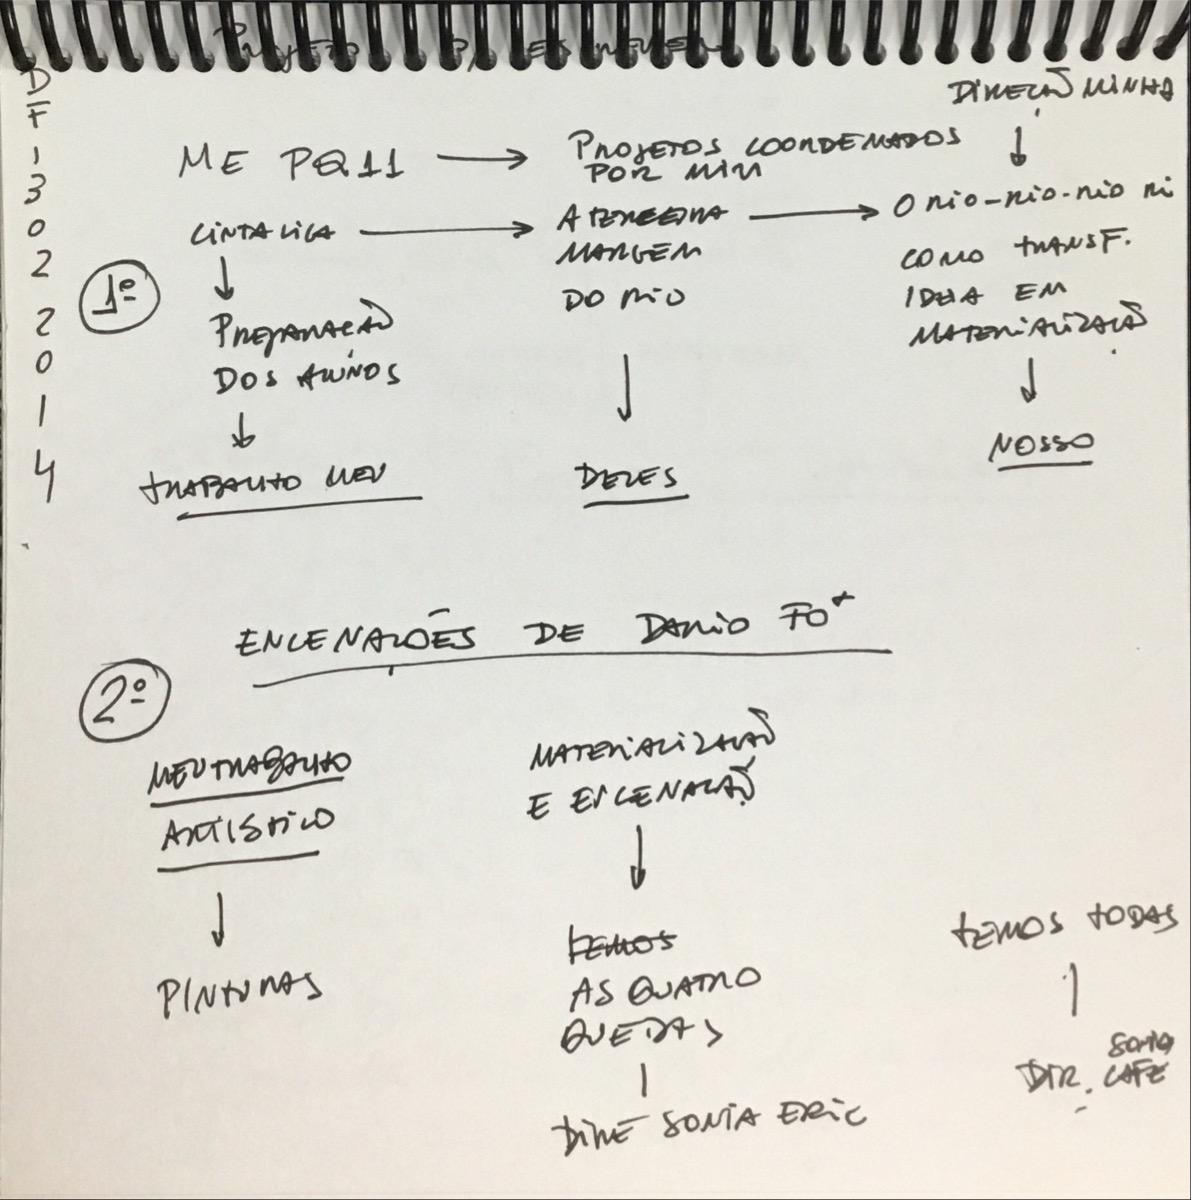 PROJETO P/
DIREÇÃO MINHA
D
F
1
3
0
2
2
0
1
4
ME PQ11 → PROJETOS COORDENADOS
POR MIM
CINTA LIGA → A TERCEIRA → O RIO-RIO-RIO RI
MARGEM
DO RIO
COMO TRANSF.
IDEIA EM
MATERIALIZAÇÃO
1º
PREPARAÇÃO
DOS ALUNOS
TRABALHO MEU
DELES
NOSSO
ENCENAÇÕES DE DARIO FO
2º
MEU TRABALHO
ARTISTICO
PINTURAS
MATERIALIZAÇÃO
E ENCENAÇÃO
TEMOS
AS QUATRO
QUEDAS
DIRE SONIA ERIC
TEMOS TODAS
SONIA
DIR. CAFE